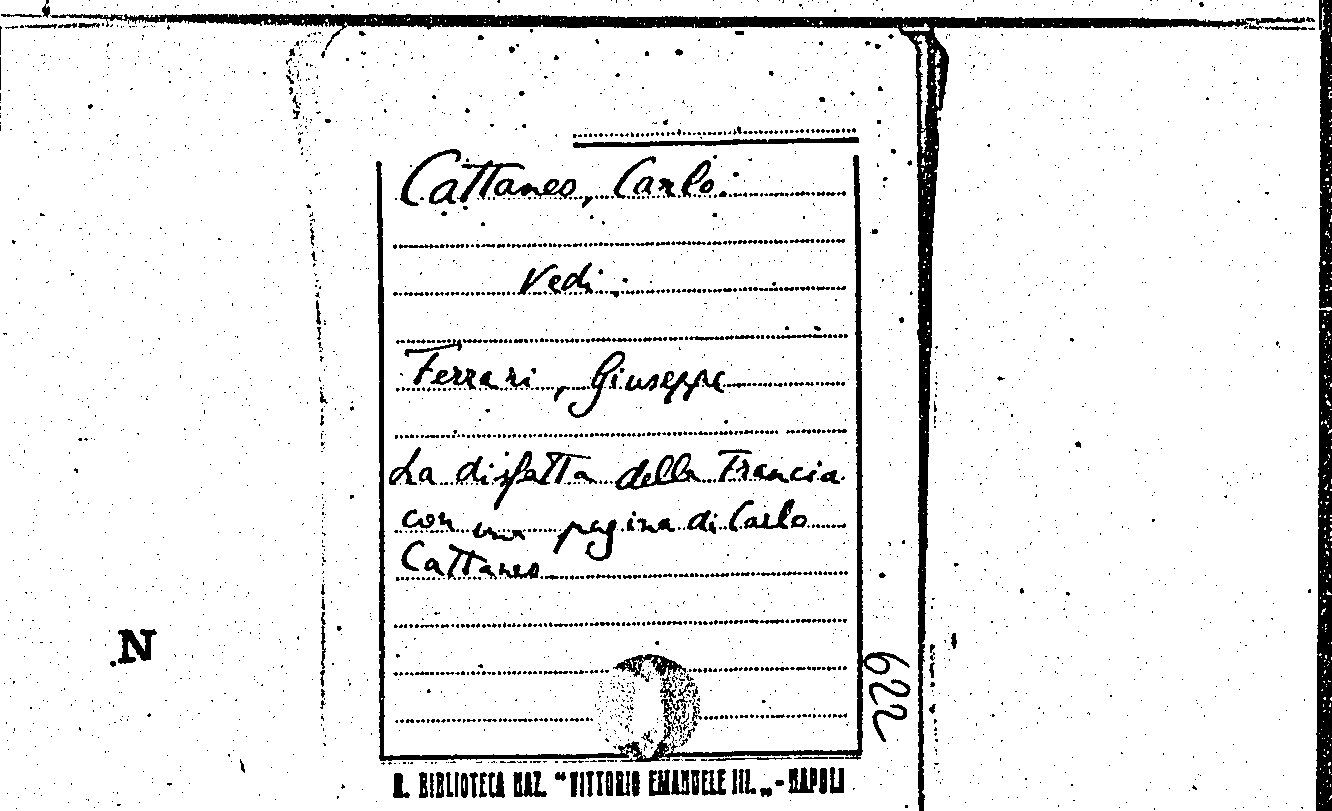 Cattaneo, Carlo.
Vedi:
Ferrari, Giuseppe
La disfatta della Francia
con una pagina di Carlo
Cattaneo.
622
N
R. BIBLIOTECA NAZ. “VITTORIO EMANUELE III.„ - NAPOLI